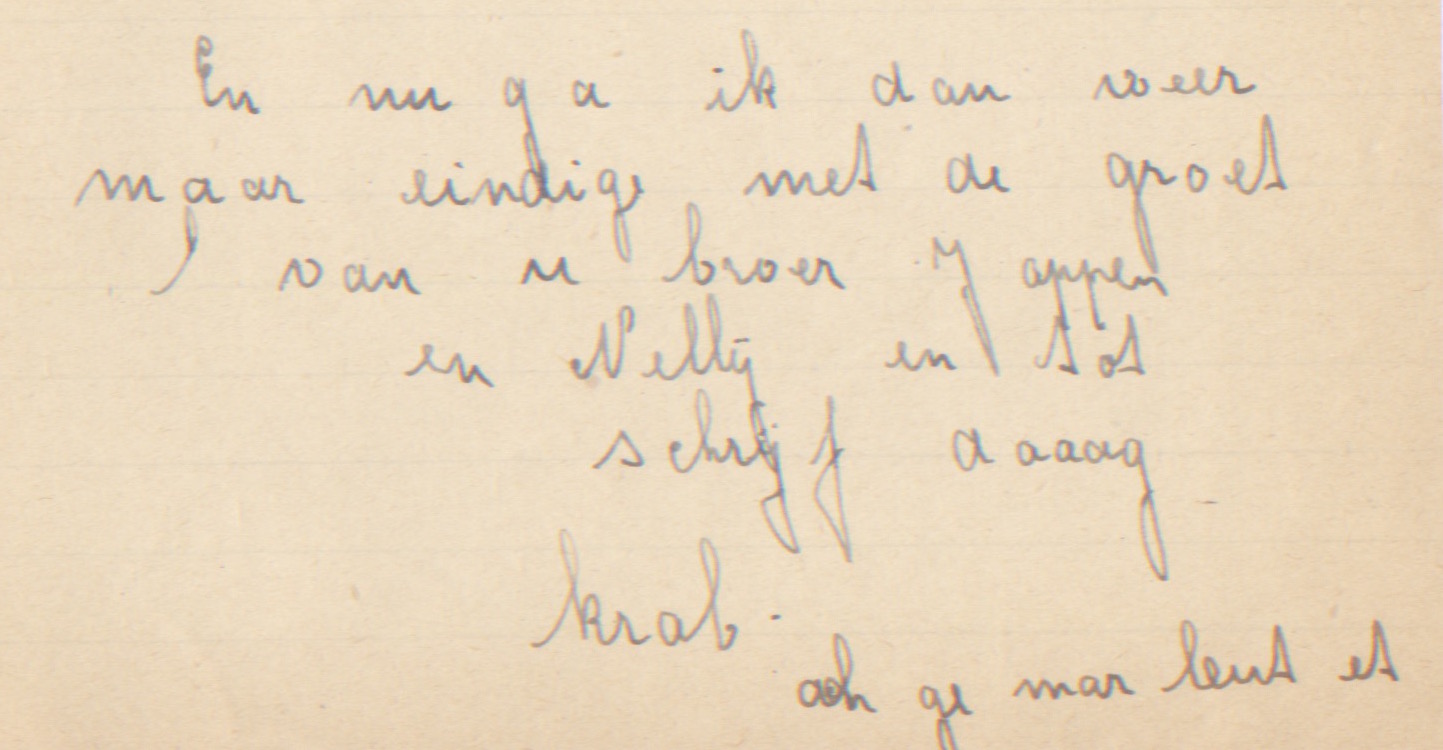 En nu ga ik dan weer
maar eindige met de groet
van u broer Jappen
en Nellij en tot
schrijf daaag
krab.
ach ge mar leut et